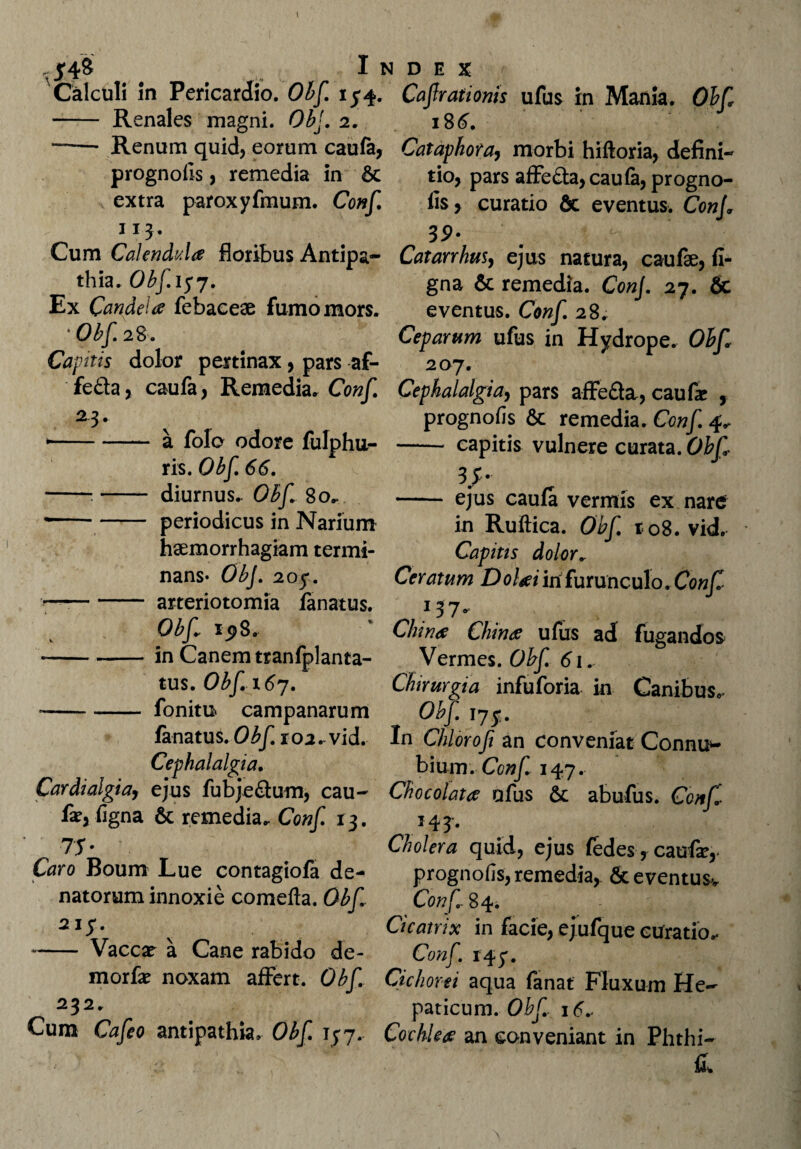 548 INDEX
Calculi in Pericardio. Obſ. 154.
—— Renales magni. Obſ. 2.
—— Renum quid, eorum cauſa,
prognoſis, remedia in &
extra paroxyſmum. Conſ.
113.
Cum Calendulæ floribus Antipa-
thia. Obſ. 157.
Ex Candelæ ſebaceæ fumo mors.
Obſ. 28.
Capitis dolor pertinax, pars af-
fecta, cauſa, Remedia. Conſ.
23.
—— —— à ſolo odore ſulphu-
ris. Obſ. 66.
—— —— diurnus. Obſ. 80.
—— —— periodicus in Narium
hæmorrhagiam termi-
nans. Obſ. 205.
—— —— arteriotomia ſanatus.
Obſ. 198.
—— —— in Canem tranſplanta-
tus. Obſ. 167.
—— —— ſonitu campanarum
ſanatus. Obſ. 102. vid.
Cephalalgia.
Cardialgia, ejus ſubjectum, cau-
ſæ, ſigna & remedia. Conſ. 13.
75.
Caro Boum Lue contagioſa de-
natorum innoxiè comeſta. Obſ.
215.
—— Vaccæ à Cane rabido de-
morſæ noxam affert. Obſ.
232.
Cum Caſeo antipathia. Obſ. 157.
Caſtrationis uſus in Mania. Obſ.
186.
Cataphora, morbi hiſtoria, defini-
tio, pars affecta, cauſa, progno-
ſis, curatio & eventus. Conſ.
39.
Catarrhus, ejus natura, cauſæ, ſi-
gna & remedia. Conſ. 27. &
eventus. Conſ. 28.
Ceparum uſus in Hydrope. Obſ.
207.
Cephalalgia, pars affecta, cauſæ,
prognoſis & remedia. Conſ. 4.
—— capitis vulnere curata. Obſ.
35.
—— ejus cauſa vermis ex nare
in Ruſtica. Obſ. 108. vid.
Capitis dolor.
Ceratum Dolæi in furunculo. Conſ.
137.
Chinæ Chinæ uſus ad fugandos
Vermes. Obſ. 61.
Chirurgia infuſoria in Canibus.
Obſ. 175.
In Chloroſi an conveniat Connu-
bium. Conſ. 147.
Chocolatæ uſus & abuſus. Conſ.
143.
Cholera quid, ejus ſedes, cauſæ,
prognoſis, remedia, & eventus.
Conſ. 84.
Cicatrix in facie, ejuſque curatio.
Conſ. 145.
Cichorei aqua ſanat Fluxum He-
paticum. Obſ. 16.
Cochleæ an conveniant in Phthi-
ſi.